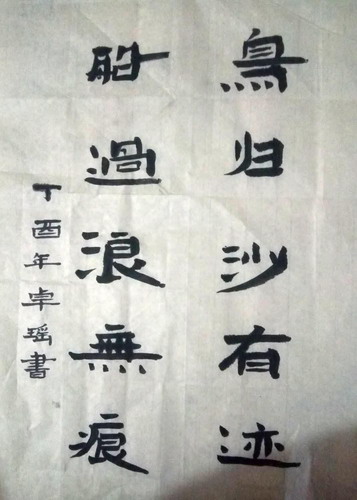 鳥归沙有迹
帆過浪無痕
丁酉年卓瑶書